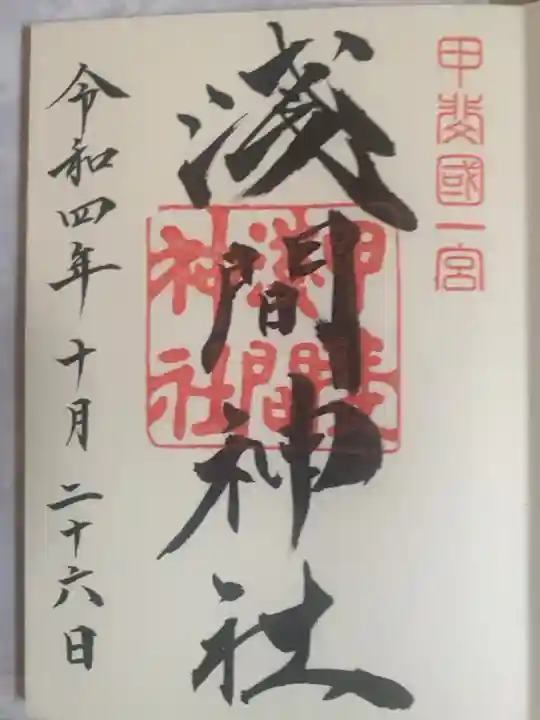 甲斐國一宮
淺間神社
甲斐淺間神社
令和四年十月二十六日